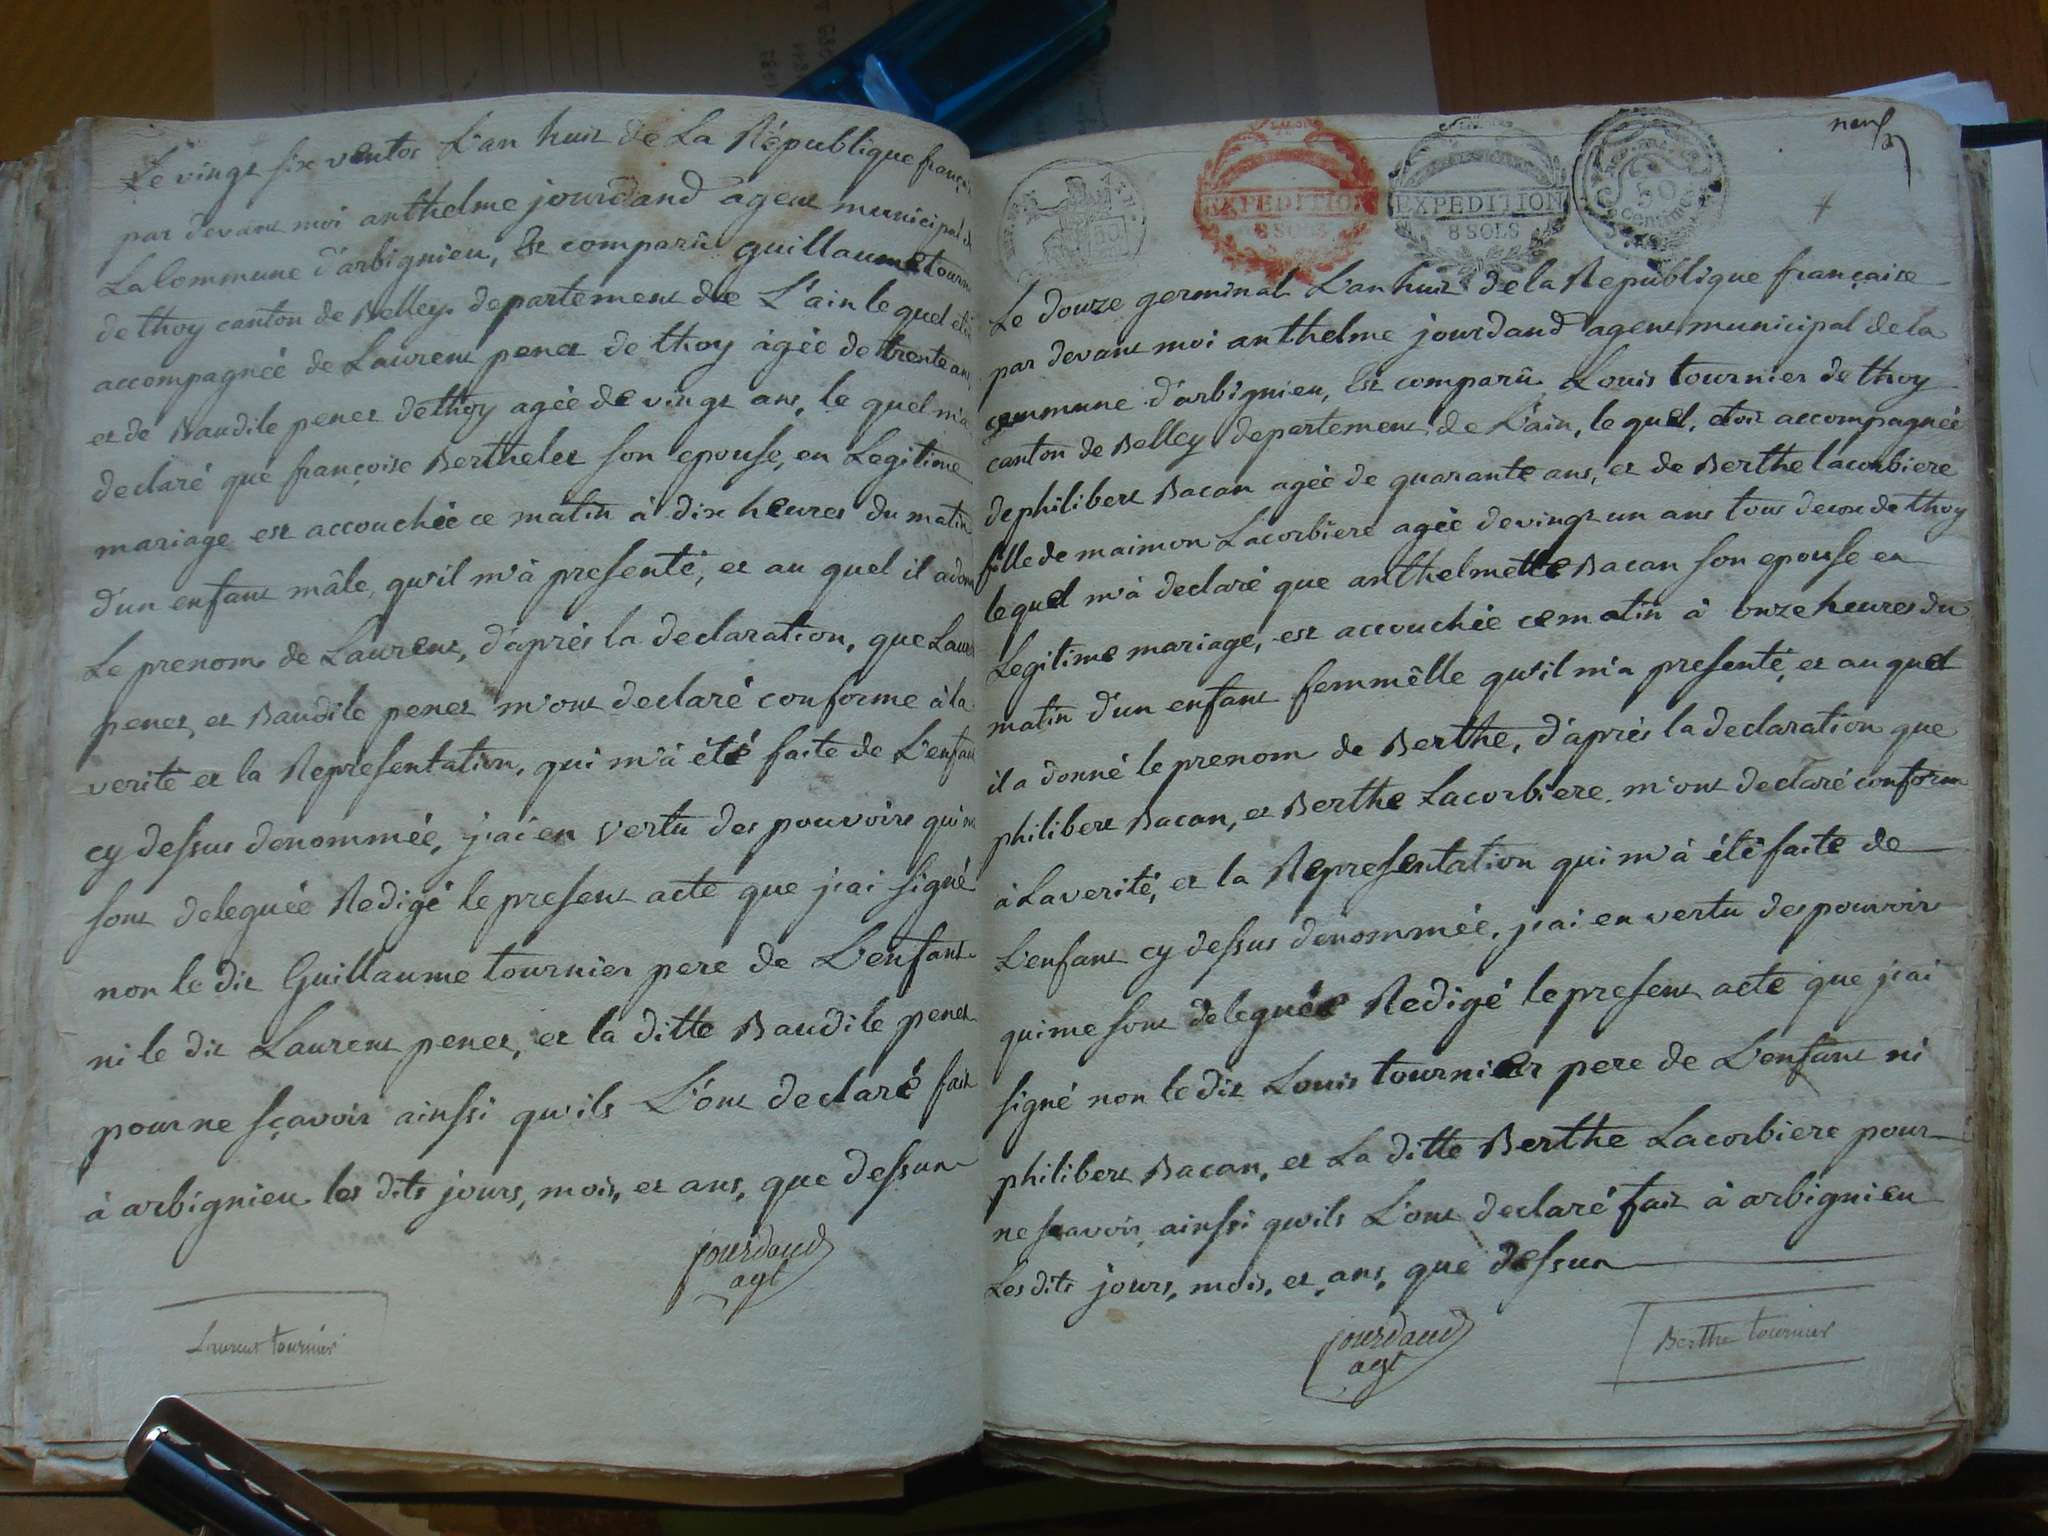 Le vingt six ventos L'an huit de La République françai
par devant moi anthelme jourdand agent municipal de
La Commune d'arbignieu, Est comparû guillaume tourni
de thoy canton de Belley departement de L'ain le quel etoi
accompagnéé de Laurent penet de thoy ágéé de trente ans,
et de Baudile penet de thoy agéé de vingt ans, le quel m'a
declaré que françoise Berthelet son epouse, en Legitime
mariage est accouchéé ce matin à dix heures du matin
d'un enfant mâle, qu'il m'à presenté, et au quel il a donn
Le prenom de Laurent, d'aprés la declaration, que Laur
penet, et Baudile penet m'ont declaré conforme à la
verité et la Representation, qui m'à été faite de L'enfan
cy dessus denommée, j'ai en vertu des pouvoirs qui m
sont deleguéé Redigé le present acte que j'ai signé
non le dit Guillaume tournier pere de L'enfant
ni le dit Laurent penet, et la ditte Baudile penet
pour ne sçavoir ainssi qu'ils L'ont declaré fait
à arbignieu les dits jours, mois, et ans, que dessun
jourdand
agt
Laurent tournier
neuf
EXPEDITION
8 SOLS
EXPEDITION
8 SOLS
50
centimes
Le douze germinal L'an huit de la Republique française
par devant moi anthelme jourdand agent municipal de la
commune d'arbignieu, Est comparû Louis tournier de thoy
canton de Belley departement de L'ain, le quel, etoit accompagnéé
de philibert Bacan agéé de quarante ans, et de Berthe lacorbiere
fille de maimon Lacorbiere agéé de vingt un ans tous deux de thoy
lequel m'à declaré que anthelmette Bacan son epouse en
Legitime mariage, est accouchéé ce matin à onze heures du
matin d'un enfant femmêlle qu'il m'a presenté, et au quel
il a donné le prenom de Berthe, d'aprés la declaration que
philibert Bacan, et Berthe Lacorbiere m'ont declaré conform
à La verité, et la Representation qui m'à été faite de
L'enfant cy dessus denommée, j'ai en vertu des pouvoir
qui me sont deleguéé Redigé le present acte que j'ai
signé non le dit Louis tournier pere de L'enfant ni
philibert Bacan, et La ditte Berthe Lacorbiere pour
ne scavoir, ainssi qu'ils L'ont declaré fait à arbignieu
Les dits jours, mois, et ans, que dessun
jourdand
agt
Berthe tournier